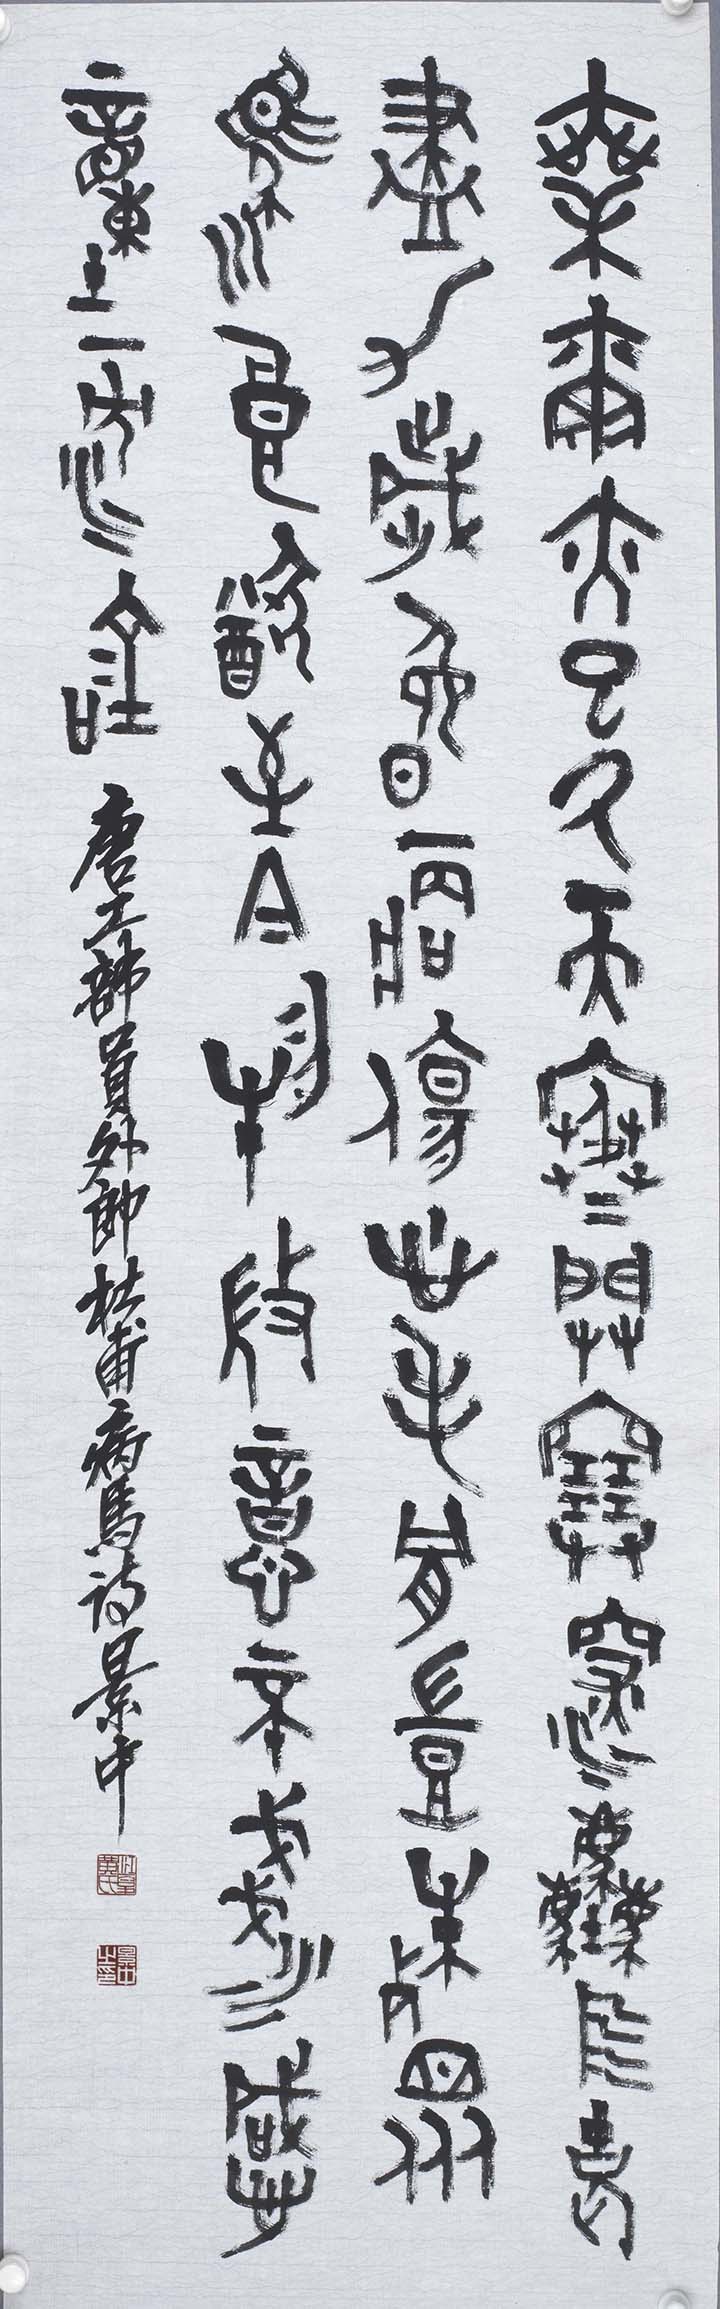 乘爾亦已久天寒關塞深塵中老
盡力歲晚病傷心毛骨豈殊眾
馴良猶至今物微意不淺感
動一沈吟 唐工部員外郎杜甫病馬詩 景中
景中之印